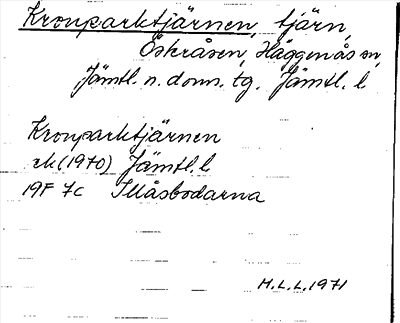 Kronparktjärnen, tjärn,
Östråsen, Häggenås sn,
Jämtl. n. doms. tg. Jämtl. l
Kronparktjärnen
ek (1970) Jämtl. l.
19F 7c Illåsbodarna
H.L.L. 1971